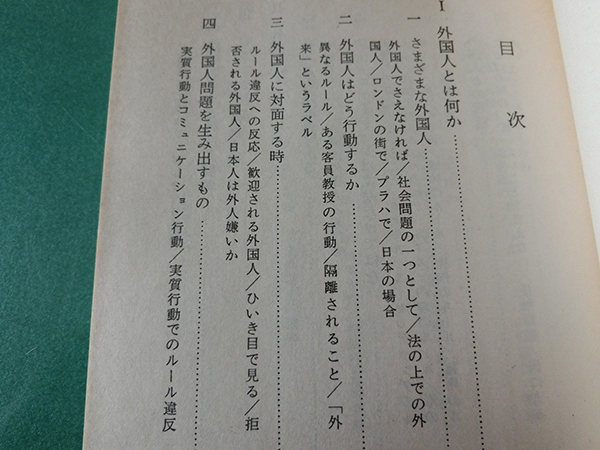 目次
Ⅰ 外国人とは何か
一 さまざまな外国人
外国人でさえなければ/社会問題の一つとして/法の上での外
国人/ロンドンの街で/プラハで/日本の場合
二 外国人はどう行動するか
異なるルール/ある客員教授の行動/隔離されること/「外
来」というラベル
三 外国人に対面する時
ルール違反への反応/歓迎される外国人/ひいき目で見る/拒
否される外国人/日本人は外人嫌いか
四 外国人問題を生み出すもの
実質行動とコミュニケーション行動/実質行動でのルール違反